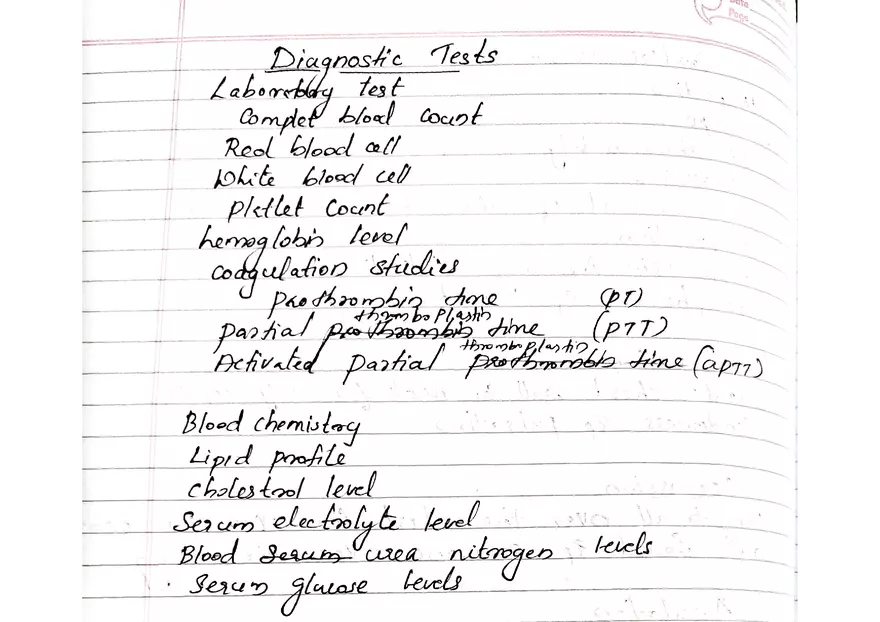 Date
Page
Diagnostic Tests
Laboretory test
Complet blood count
Red blood cell
White blood cell
Platlet Count
hemoglobin level
coagulation studies
Prothrombin time (PT)
thromboplastin
Partial prothrombin time (PTT)
thromboplastin
Activated Partial prothrombin time (aPTT)
Blood chemistry
Lipid profile
cholestrol level
Serum electrolyte level
Blood serum urea nitrogen levels
Serum glucose levels